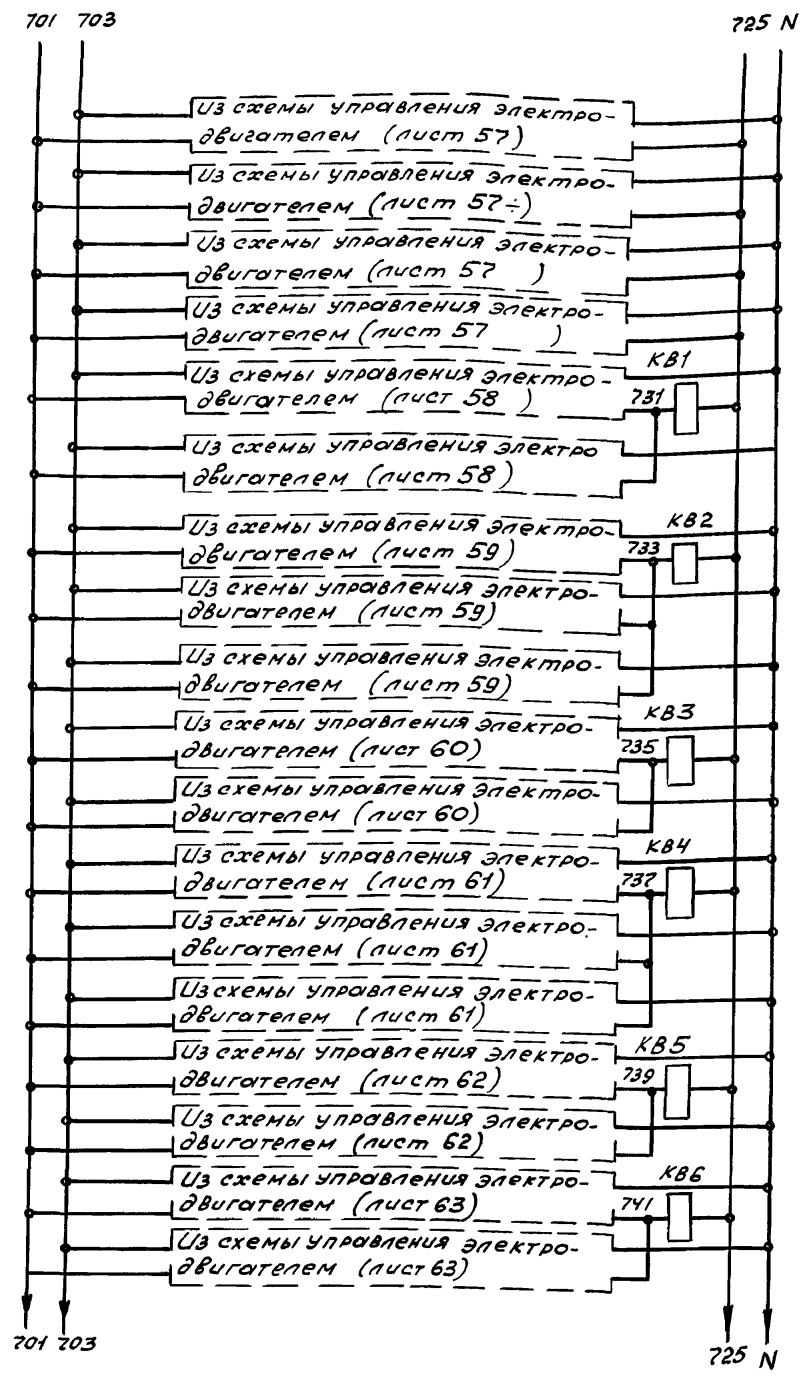 701 703 725 N
Из схемы управления электро-
двигателем (лист 57)
Из схемы управления электро-
двигателем (лист 57÷)
Из схемы управления электро-
двигателем (лист 57 )
Из схемы управления электро-
двигателем (лист 57 )
КВ1
Из схемы управления электро-
двигателем (лист 58 ) 731
Из схемы управления электро
двигателем (лист 58)
КВ2
Из схемы управления электро-
двигателем (лист 59) 733
Из схемы управления электро-
двигателем (лист 59)
Из схемы управления электро-
двигателем (лист 59)
КВ3
Из схемы управления электро-
двигателем (лист 60) 735
Из схемы управления электро-
двигателем (лист 60)
КВ4
Из схемы управления электро-
двигателем (лист 61) 737
Из схемы управления электро-
двигателем (лист 61)
Из схемы управления электро-
двигателем (лист 61)
КВ5
Из схемы управления электро-
двигателем (лист 62) 739
Из схемы управления электро-
двигателем (лист 62)
КВ6
Из схемы управления электро-
двигателем (лист 63) 741
Из схемы управления электро-
двигателем (лист 63)
701 703 725 N